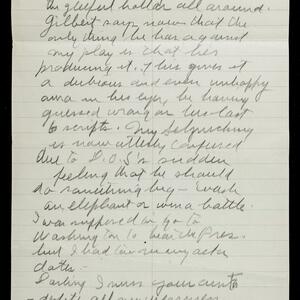 gleeful holler all around.
Gilbert says now that the
only thing he has against
my play is that he's
producing it. This gives it
a dubious and even unhappy
aura in his eyes, he having
guessed wrong on his last
6 scripts. My
is now utterly confused
due to D.O.S's sudden
feeling that he should
do something big – wash
an elephant or win a battle.
I was supposed to go to
Washington to hear the Pres.
but I had too many
dates –
Darling I miss you
– despite all my